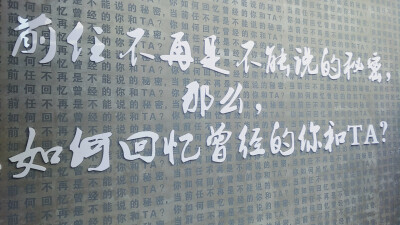 前任不再是不能说的秘密,
那么,
如何回忆曾经的你和TA?